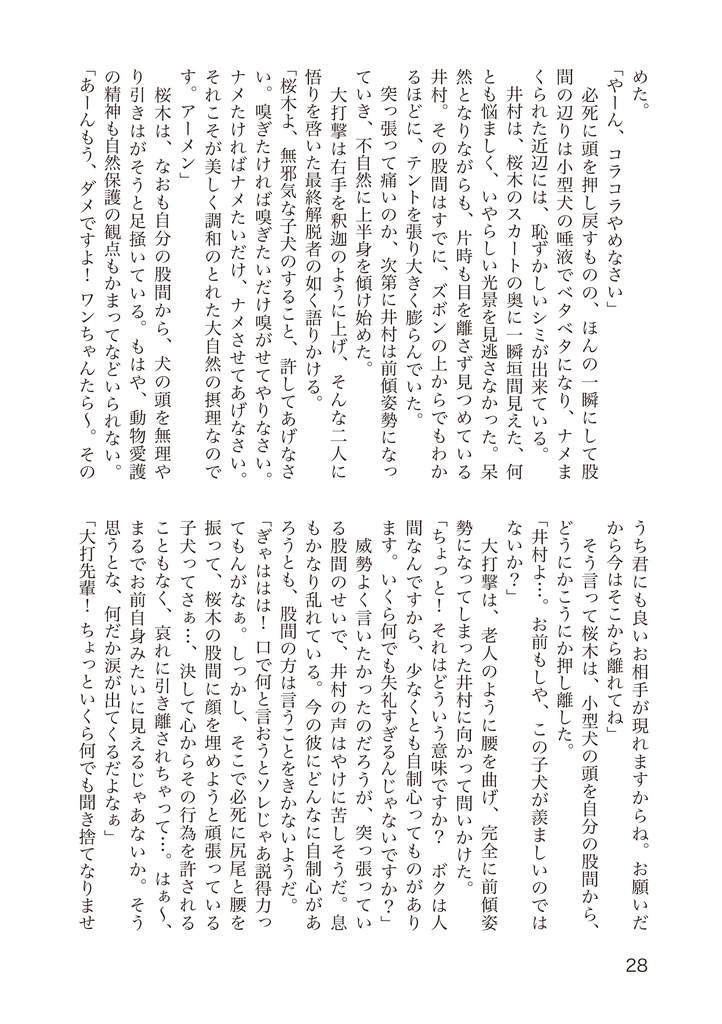 めた。
「やーん、コラコラやめなさい」
　必死に頭を押し戻すものの、ほんの一瞬にして股
間の辺りは小型犬の唾液でベタベタになり、ナメま
くられた近辺には、恥ずかしいシミが出来ている。
　井村は、桜木のスカートの奥に一瞬垣間見えた、何
とも悩ましく、いやらしい光景を見逃さなかった。呆
然となりながらも、片時も目を離さず見つめている
井村。その股間はすでに、ズボンの上からでもわか
るほどに、テントを張り大きく膨らんでいた。
　突っ張って痛いのか、次第に井村は前傾姿勢になっ
ていき、不自然に上半身を傾け始めた。
　大打撃は右手を釈迦のように上げ、そんな二人に
悟りを啓いた最終解脱者の如く語りかける。
「桜木よ、無邪気な子犬のすること、許してあげなさ
い。嗅ぎたければ嗅ぎたいだけ嗅がせてやりなさい。
ナメたければナメたいだけ、ナメさせてあげなさい。
それこそが美しく調和のとれた大自然の摂理なので
す。アーメン」
　桜木は、なおも自分の股間から、犬の頭を無理や
り引きはがそうと足掻いている。もはや、動物愛護
の精神も自然保護の観点もかまってなどいられない。
「あーんもう、ダメですよ！ ワンちゃんたら～。その
うち君にも良いお相手が現れますからね。お願いだ
から今はそこから離れてね」
　そう言って桜木は、小型犬の頭を自分の股間から、
どうにかこうにか押し離した。
「井村よ…。お前もしや、この子犬が羨ましいのでは
ないか？」
　大打撃は、老人のように腰を曲げ、完全に前傾姿
勢になってしまった井村に向かって問いかけた。
「ちょっと！ それはどういう意味ですか？　ボクは人
間なんですから、少なくとも自制心ってものがあり
ます。いくら何でも失礼すぎるんじゃないですか？」
　威勢よく言いたかったのだろうが、突っ張ってい
る股間のせいで、井村の声はやけに苦しそうだ。息
もかなり乱れている。今の彼にどんなに自制心があ
ろうとも、股間の方は言うことをきかないようだ。
「ぎゃははは！ 口で何と言おうとソレじゃあ説得力っ
てもんがなぁ。しっかし、そこで必死に尻尾と腰を
振って、桜木の股間に顔を埋めようと頑張っている
子犬ってさぁ…、決して心からその行為を許される
こともなく、哀れに引き離されちゃって…。はぁ～、
まるでお前自身みたいに見えるじゃあないか。そう
思うとな、何だか涙が出てくるだよなぁ」
「大打先輩！ ちょっといくら何でも聞き捨てなりませ
28